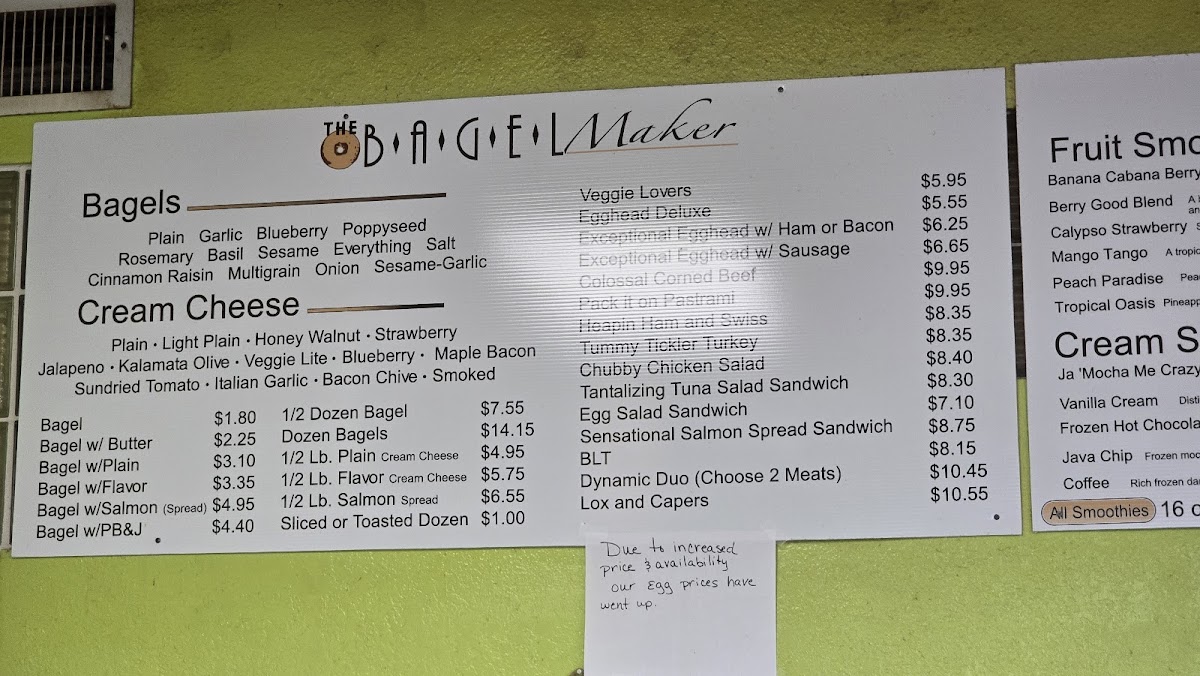 THE BAGEL Maker
Bagels
Plain Garlic Blueberry Poppyseed
Rosemary Basil Sesame Everything Salt
Cinnamon Raisin Multigrain Onion Sesame-Garlic
Cream Cheese
Plain • Light Plain • Honey Walnut • Strawberry
Jalapeno • Kalamata Olive • Veggie Lite • Blueberry • Maple Bacon
Sundried Tomato • Italian Garlic • Bacon Chive • Smoked
Bagel $1.80
Bagel w/ Butter $2.25
Bagel w/Plain $3.10
Bagel w/Flavor $3.35
Bagel w/Salmon (Spread) $4.95
Bagel w/PB&J $4.40
1/2 Dozen Bagel $7.55
Dozen Bagels $14.15
1/2 Lb. Plain Cream Cheese $4.95
1/2 Lb. Flavor Cream Cheese $5.75
1/2 Lb. Salmon Spread $6.55
Sliced or Toasted Dozen $1.00
Veggie Lovers $5.95
Egghead Deluxe $5.55
Exceptional Egghead w/ Ham or Bacon $6.25
Exceptional Egghead w/ Sausage $6.65
Colossal Corned Beef $9.95
Pack it on Pastrami $9.95
Heapin Ham and Swiss $8.35
Tummy Tickler Turkey $8.35
Chubby Chicken Salad $8.40
Tantalizing Tuna Salad Sandwich $8.30
Egg Salad Sandwich $7.10
Sensational Salmon Spread Sandwich $8.75
BLT $8.15
Dynamic Duo (Choose 2 Meats) $10.45
Lox and Capers $10.55
Due to increased
price & availability
our Egg prices have
went up.
Fruit Smo
Banana Cabana Berry
Berry Good Blend
Calypso Strawberry
Mango Tango A tropic
Peach Paradise Pea
Tropical Oasis Pineapp
Cream S
Ja 'Mocha Me Crazy
Vanilla Cream Disti
Frozen Hot Chocola
Java Chip Frozen moc
Coffee Rich frozen da
All Smoothies 16 o